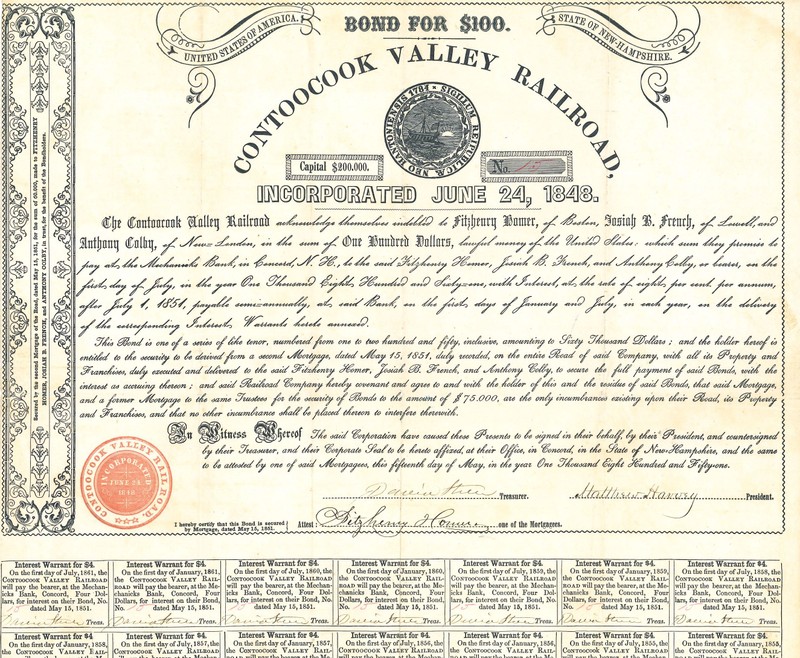 UNITED STATES OF AMERICA.
BOND FOR $100.
STATE OF NEW-HAMPSHIRE.
CONTOOCOOK VALLEY RAILROAD,
SIGILLUM REIPUBLICÆ NEO HANTONIENSIS 1784
Capital $200.000.
No. 15
INCORPORATED JUNE 24, 1848.
The Contoocook Valley Railroad acknowledge themselves indebted to Fitzhenry Homer, of Boston, Josiah B. French, of Lowell, and
Anthony Colby, of New London, in the sum of One Hundred Dollars, lawful money of the United States: which sum they promise to
pay at the Mechanicks Bank, in Concord, N. H., to the said Fitzhenry Homer, Josiah B. French, and Anthony Colby, or bearer, on the
first day of July, in the year One Thousand Eight Hundred and Sixty=one, with Interest, at the rate of eight per cent. per annum,
after July 1, 1851, payable semi=annually, at said Bank, on the first days of January and July, in each year, on the delivery
of the corresponding Interest Warrants hereto annexed.
This Bond is one of a series of like tenor, numbered from one to two hundred and fifty, inclusive, amounting to Sixty Thousand Dollars; and the holder hereof is
entitled to the security to be derived from a second Mortgage, dated May 15, 1851, duly recorded, on the entire Road of said Company, with all its Property and
Franchises, duly executed and delivered to the said Fitzhenry Homer, Josiah B. French, and Anthony Colby, to secure the full payment of said Bonds, with the
interest as accruing thereon; and said Railroad Company hereby covenant and agree to and with the holder of this and the residue of said Bonds, that said Mortgage,
and a former Mortgage to the same Trustees for the security of Bonds to the amount of $75.000, are the only incumbrances existing upon their Road, its Property
and Franchises, and that no other incumbrance shall be placed thereon to interfere therewith.
In Witness Whereof The said Corporation have caused these Presents to be signed in their behalf, by their President, and countersigned
by their Treasurer, and their Corporate Seal to be hereto affixed, at their Office, in Concord, in the State of New=Hampshire, and the same
to be attested by one of said Mortgagees, this fifteenth day of May, in the year One Thousand Eight Hundred and Fifty=one.
Treasurer.
Matthew Harvey President.
I hereby certify that this Bond is secured
by Mortgage, dated May 15, 1851.
Attest: Fitzhenry Homer one of the Mortgagees.
Secured by the second Mortgage of the Road, dated May 15, 1851, for the sum of 60.000, made to FITZHENRY
HOMER, JOSIAH B. FRENCH, and ANTHONY COLBY, in trust, for the benefit of the Bondholders.
CONTOOCOOK VALLEY RAIL ROAD.
INCORPORATED
JUNE 24
1848
Interest Warrant for $4.
On the first day of July, 1861, the
CONTOOCOOK VALLEY RAILROAD
will pay the bearer, at the Mechan-
icks Bank, Concord, Four Dol-
lars, for interest on their Bond, No.
dated May 15, 1851.
Treas.
Interest Warrant for $4.
On the first day of January, 1861,
the CONTOOCOOK VALLEY RAIL-
ROAD will pay the bearer, at the Me-
chanicks Bank, Concord, Four
Dollars, for interest on their Bond,
No. dated May 15, 1851.
Treas.
Interest Warrant for $4.
On the first day of July, 1860, the
CONTOOCOOK VALLEY RAILROAD
will pay the bearer, at the Mechan-
icks Bank, Concord, Four Dol-
lars, for interest on their Bond, No.
dated May 15, 1851.
Treas.
Interest Warrant for $4.
On the first day of January, 1860,
the CONTOOCOOK VALLEY RAIL-
ROAD will pay the bearer, at the Me-
chanicks Bank, Concord, Four
Dollars, for interest on their Bond,
No. dated May 15, 1851.
Treas.
Interest Warrant for $4.
On the first day of July, 1859, the
CONTOOCOOK VALLEY RAILROAD
will pay the bearer, at the Mechan-
icks Bank, Concord, Four Dol-
lars, for interest on their Bond, No.
dated May 15, 1851.
Treas.
Interest Warrant for $4.
On the first day of January, 1859,
the CONTOOCOOK VALLEY RAIL-
ROAD will pay the bearer, at the Me-
chanicks Bank, Concord, Four
Dollars, for interest on their Bond,
No. dated May 15, 1851.
Treas.
Interest Warrant for $4.
On the first day of July, 1858, the
CONTOOCOOK VALLEY RAILROAD
will pay the bearer, at the Mechan-
icks Bank, Concord, Four Dol-
lars, for interest on their Bond, No.
dated May 15, 1851.
Treas.
Interest Warrant for $4.
On the first day of January, 1858,
the CONTOOCOOK VALLEY RAIL-
Interest Warrant for $4.
On the first day of July, 1857, the
CONTOOCOOK VALLEY RAILROAD
will pay the bearer, at the Mechan-
Interest Warrant for $4.
On the first day of January, 1857,
the CONTOOCOOK VALLEY RAIL-
ROAD will pay the bearer, at the Me-
Interest Warrant for $4.
On the first day of July, 1856, the
CONTOOCOOK VALLEY RAILROAD
will pay the bearer, at the Mechan-
Interest Warrant for $4.
On the first day of January, 1856,
the CONTOOCOOK VALLEY RAIL-
ROAD will pay the bearer, at the Me-
Interest Warrant for $4.
On the first day of July, 1855, the
CONTOOCOOK VALLEY RAILROAD
will pay the bearer, at the Mechan-
Interest Warrant for $4.
On the first day of January, 1855,
the CONTOOCOOK VALLEY RAIL-
ROAD will pay the bearer, at the Me-